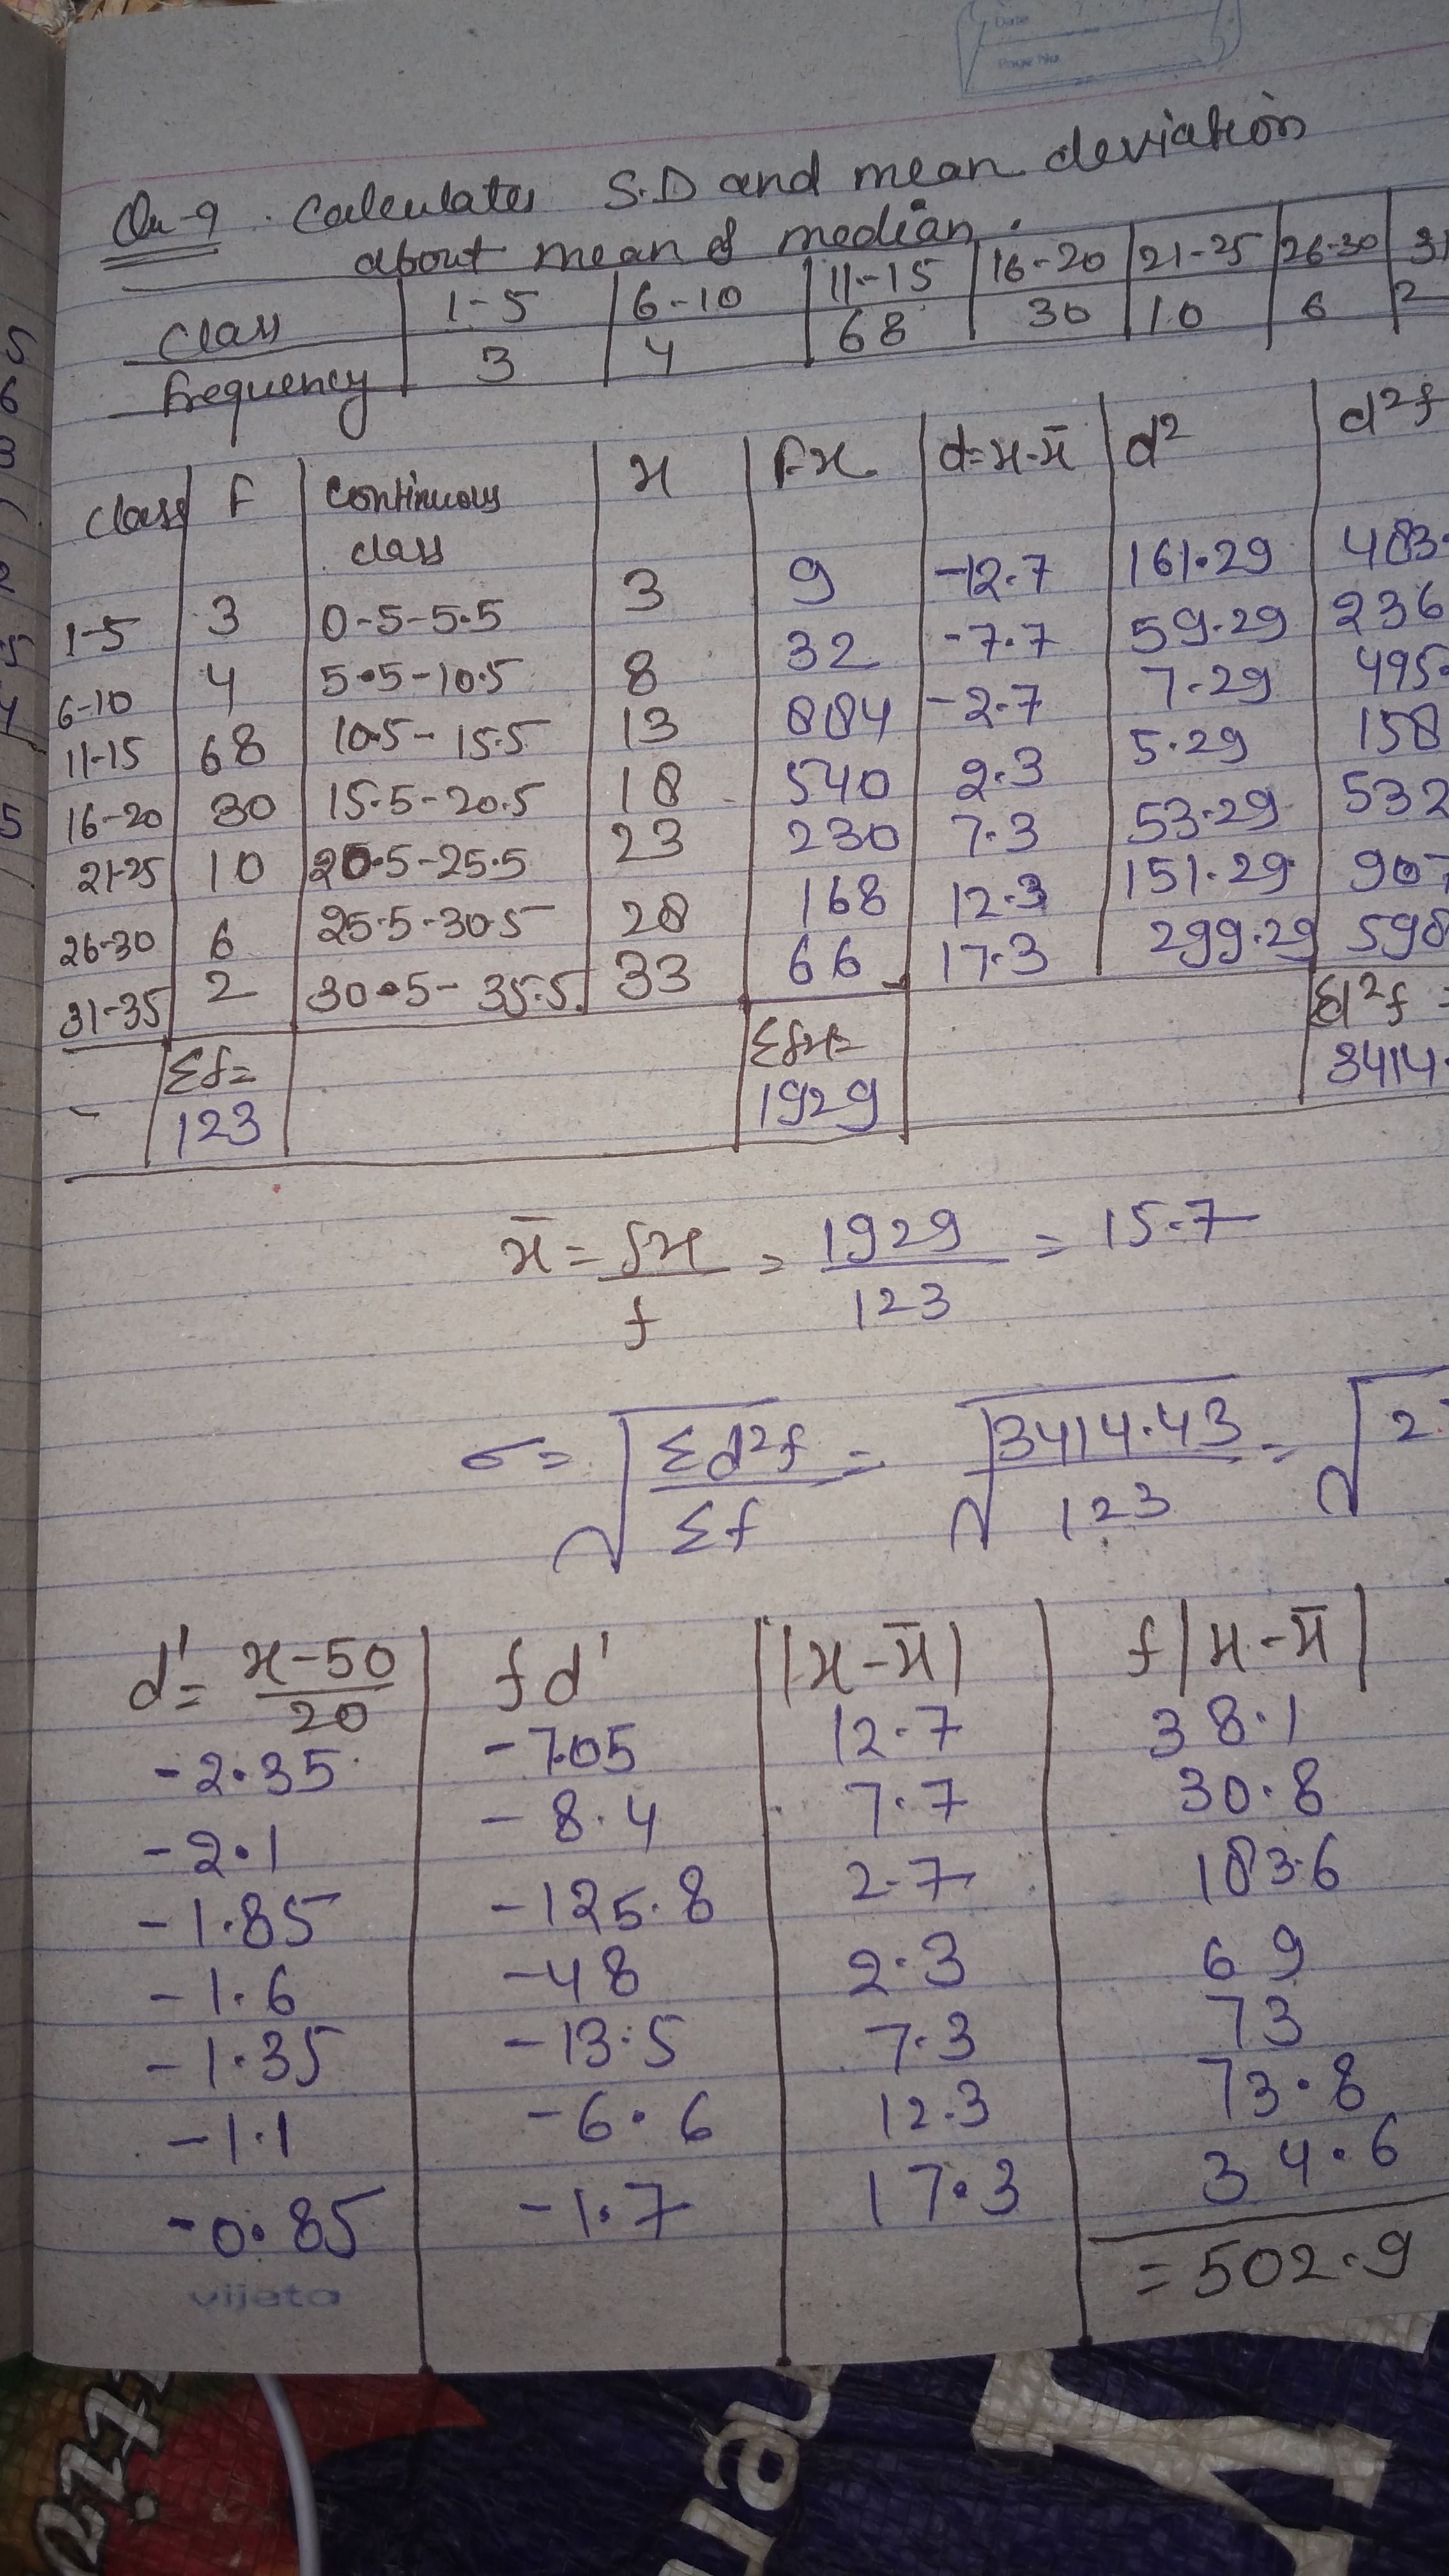 Date
Page No
Qu-9. Calculates S.D and mean deviation
about mean & median.
Class 1-5 6-10 11-15 16-20 21-25 26-30
Frequency 3 4 68 30 10 6 2
Class F Continuous class x Fx d=x-x̄ d² d²f
1-5 3 0-5-5.5 3 9 -12.7 161.29 483.
6-10 4 5.5-10.5 8 32 -7.7 59.29 236
11-15 68 10.5-15.5 13 884 -2.7 7.29 495.
16-20 30 15.5-20.5 18 540 2.3 5.29 158
21-25 10 20.5-25.5 23 230 7.3 53.29 532
26-30 6 25.5-30.5 28 168 12.3 151.29 907
31-35 2 30.5-35.5 33 66 17.3 299.29 598
- Σf= 123 Σfx= 1929 Σd²f = 3414.
x̄ = fx/f = 1929/123 = 15.7
σ = √Σd²f/Σf = √3414.43/123 = √2
d' = x-50/20 fd' |x-x̄| f|x-x̄|
-2.35 -7.05 12.7 38.1
-2.1 -8.4 7.7 30.8
-1.85 -125.8 2.7 183.6
-1.6 -48 2.3 69
-1.35 -13.5 7.3 73
-1.1 -6.6 12.3 73.8
-0.85 -1.7 17.3 34.6
= 502.9
vijeta